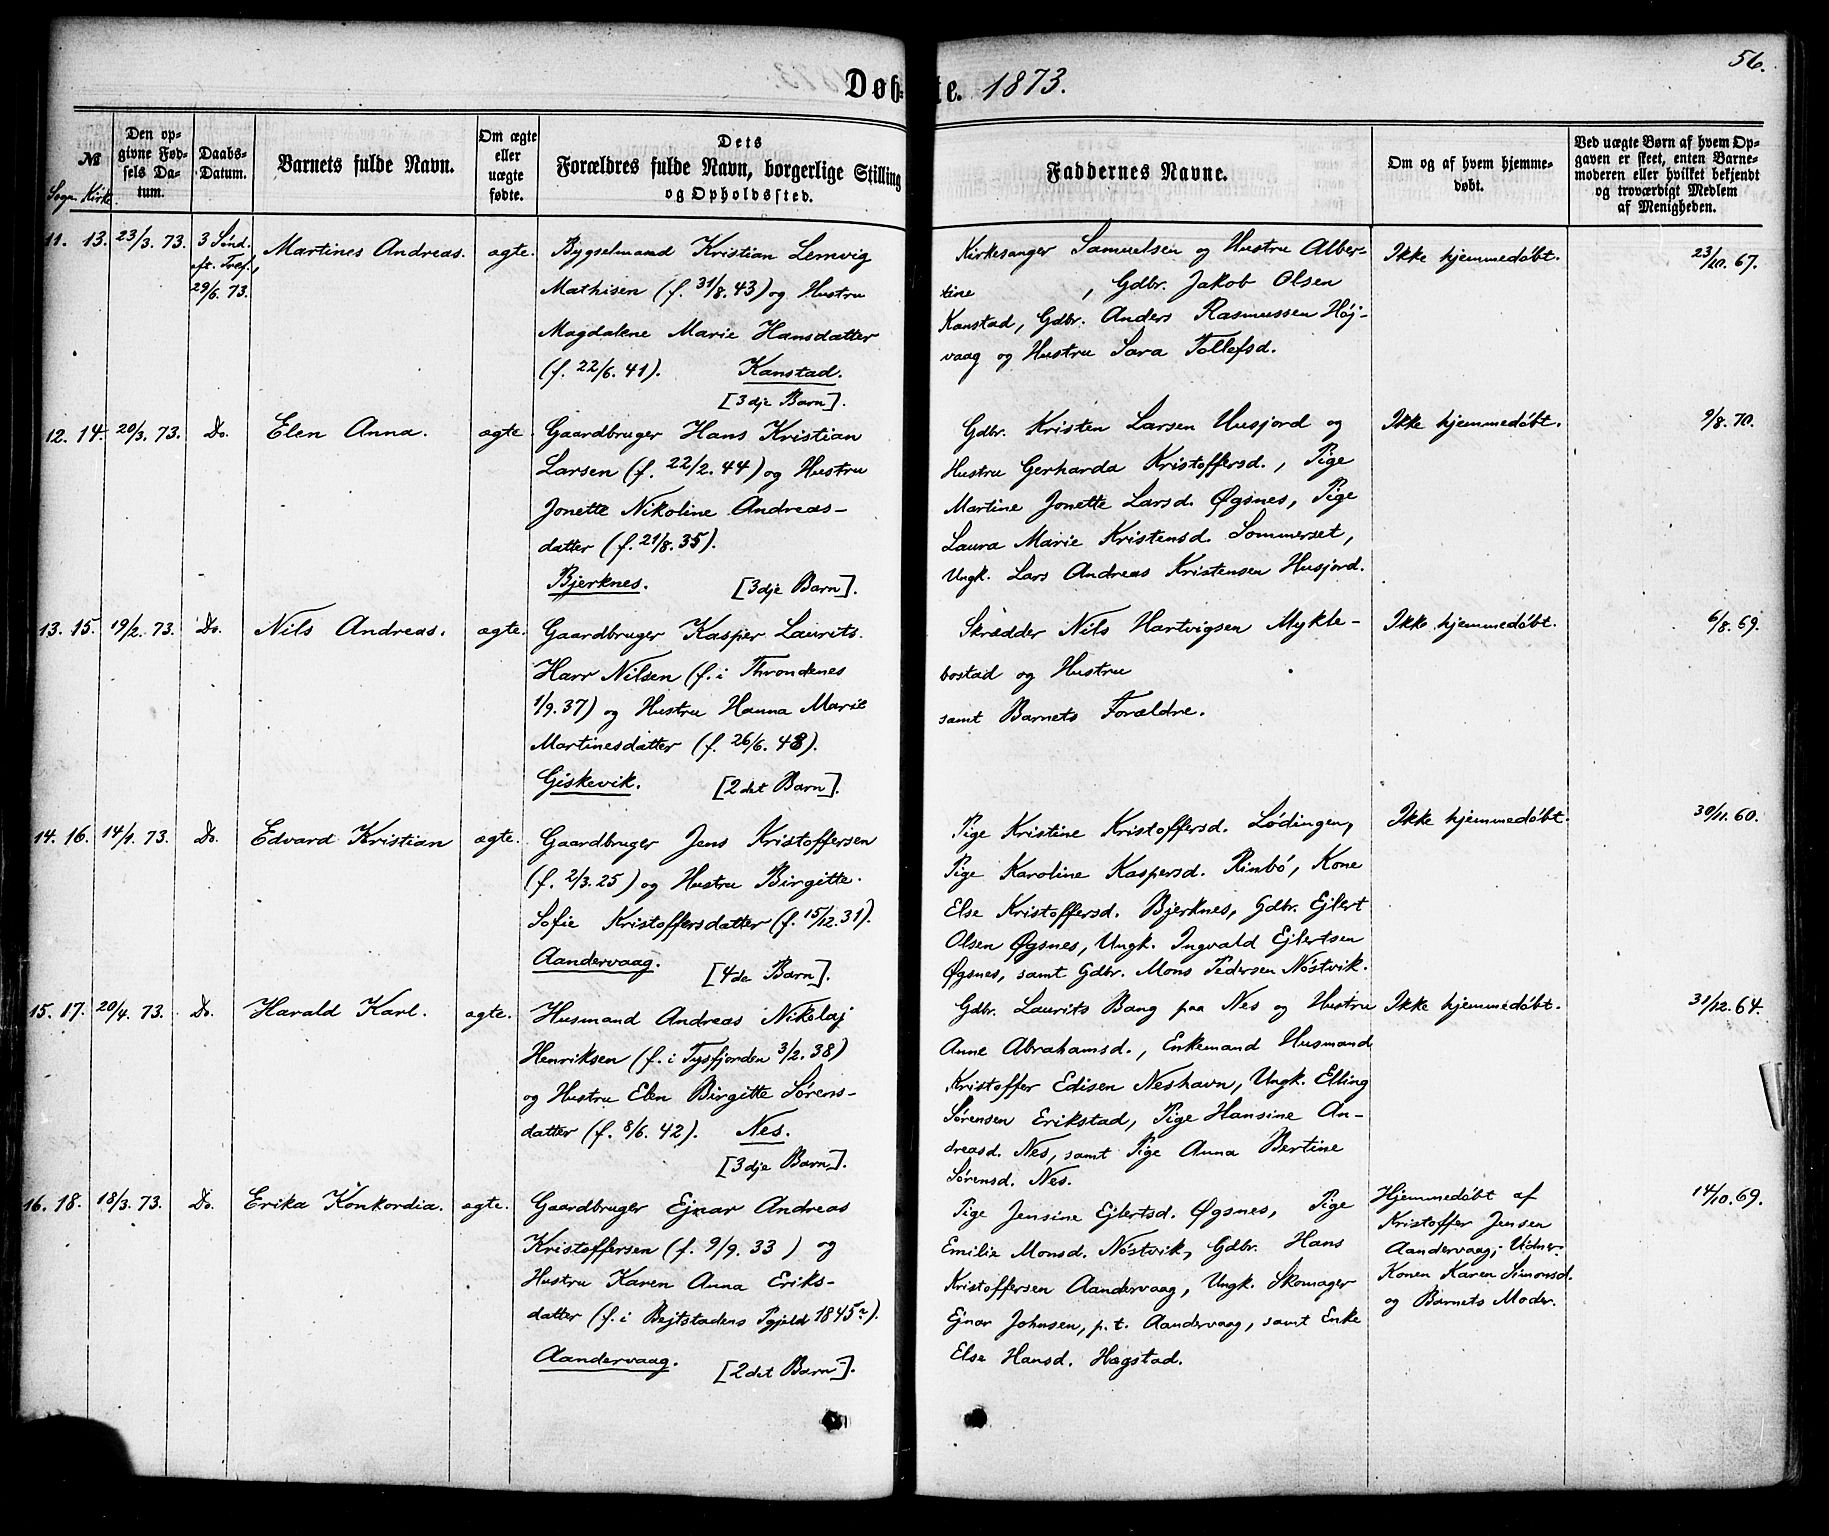 56.
Døbte. 1873.
№
Sogn. Kirke.
Den op-
givne Fød-
sels Da-
tum.
Daabs-
Datum.
Barnets fulde Navn.
Om ægte
eller
uægte
fødte.
Dets
Forældres fulde Navn, borgerlige Stilling
og Opholdssted.
Faddernes Navne.
Om og af hvem hjemme-
døbt.
Ved uægte Børn af hvem Op-
gaven er skeet, enten Barne-
moderen eller hvilket bekjendt
og troværdigt Medlem
af Menigheden.
11. 13. 23/3. 73.
3 Sønd.
eft. Tref.,
29/6. 73.
Martines Andreas.
ægte.
Bygselmand Kristian Lemvig
Mathisen (f. 31/8. 43) og Hustru
Magdalene Marie Hansdatter
(f. 22/6. 41). Kanstad.
[3dje Barn].
Kirkesanger Samuelsen og Hustru Alber-
tine , Gdbr. Jakob Olsen
Kanstad, Gdbr. Anders Rasmussen Høj-
vaag og Hustru Sara Tollefsd.
Ikke hjemmedøbt.
23/10. 67.
12. 14. 20/3. 73.
Do.
Elen Anna.
ægte
Gaardbruger Hans Kristian
Larsen (f. 22/2. 44) og Hustru
Jonette Nikoline Andreas-
datter (f. 21/8. 35).
Bjerknes. [3dje Barn].
Gdbr. Kristen Larsen Husjord og
Hustru Gerharda Kristoffersd., Pige
Martine Jonette Larsd. Øgsnes, Pige
Laura Marie Kristensd. Sommerset,
Ungk. Lars Andreas Kristensen Husjord.
Ikke hjemmedøbt.
9/8. 70.
13. 15. 19/2. 73.
Do.
Nils Andreas.
ægte.
Gaardbruger Kasper Laurits
Harr Nilsen (f. i Throndenes
1/9. 37) og Hustru Hanna Marie
Martinesdatter (f. 26/6. 48).
Giskevik. [2det Barn].
Skrædder Nils Hartvigsen Mykle-
bostad og Hustru
samt Barnets Forældre.
Ikke hjemmedøbt.
6/8. 69.
14. 16. 14/1. 73.
Do.
Edvard Kristian
ægte.
Gaardbruger Jens Kristoffersen
(f. 2/3. 25) og Hustru Birgitte
Sofie Kristoffersdatter (f. 15/12. 31).
Aandervaag. [4de Barn].
Pige Kristine Kristoffersd. Lødingen,
Pige Karoline Kaspersd. Rinbø, Kone
Else Kristoffersd. Bjerknes, Gdbr. Ejlert
Olsen Øgsnes, Ungk. Ingvald Ejlertsen
Øgsnes, samt Gdbr. Mons Pedersen Nøstvik.
Ikke hjemmedøbt.
30/11. 60.
15. 17. 20/4. 73.
Do.
Harald Karl.
ægte.
Husmand Andreas Nikolaj
Henriksen (f. i Tysfjorden 3/2. 38)
og Hustru Elen Birgitte Sørens-
datter (f. 8/6. 42). Nes.
[3dje Barn].
Gdbr. Laurits Bang paa Nes og Hustru
Anne Abrahamsd., Enkemand Husmand
Kristoffer Edisen Neshavn, Ungk. Elling
Sørensen Erikstad, Pige Hansine An-
dreasd. Nes, samt Pige Anna Bertine
Sørensd. Nes.
Ikke hjemmedøbt.
31/12. 64.
16. 18. 18/3. 73.
Do.
Erika Konkordia.
ægte.
Gaardbruger Ejnar Andreas
Kristoffersen (f. 9/9. 33 ) og
Hustru Karen Anna Eriks-
datter (f. i Bejtstadens Pgjeld 1845?).
Aandervaag. [2det Barn].
Pige Jensine Ejlertsd. Øgsnes, Pige
Emilie Monsd. Nøstvik, Gdbr. Hans
Kristoffersen Aandervaag, Ungk. Skomager
Ejnar Johnsen, p.t. Aandervaag, samt Enke
Else Hansd. Hægstad.
Hjemmedøbt af
Kristoffer Jensen
Aandervaag; Vidner:
Konen Karen Simonsd.
og Barnets Moder.
14/10. 69.